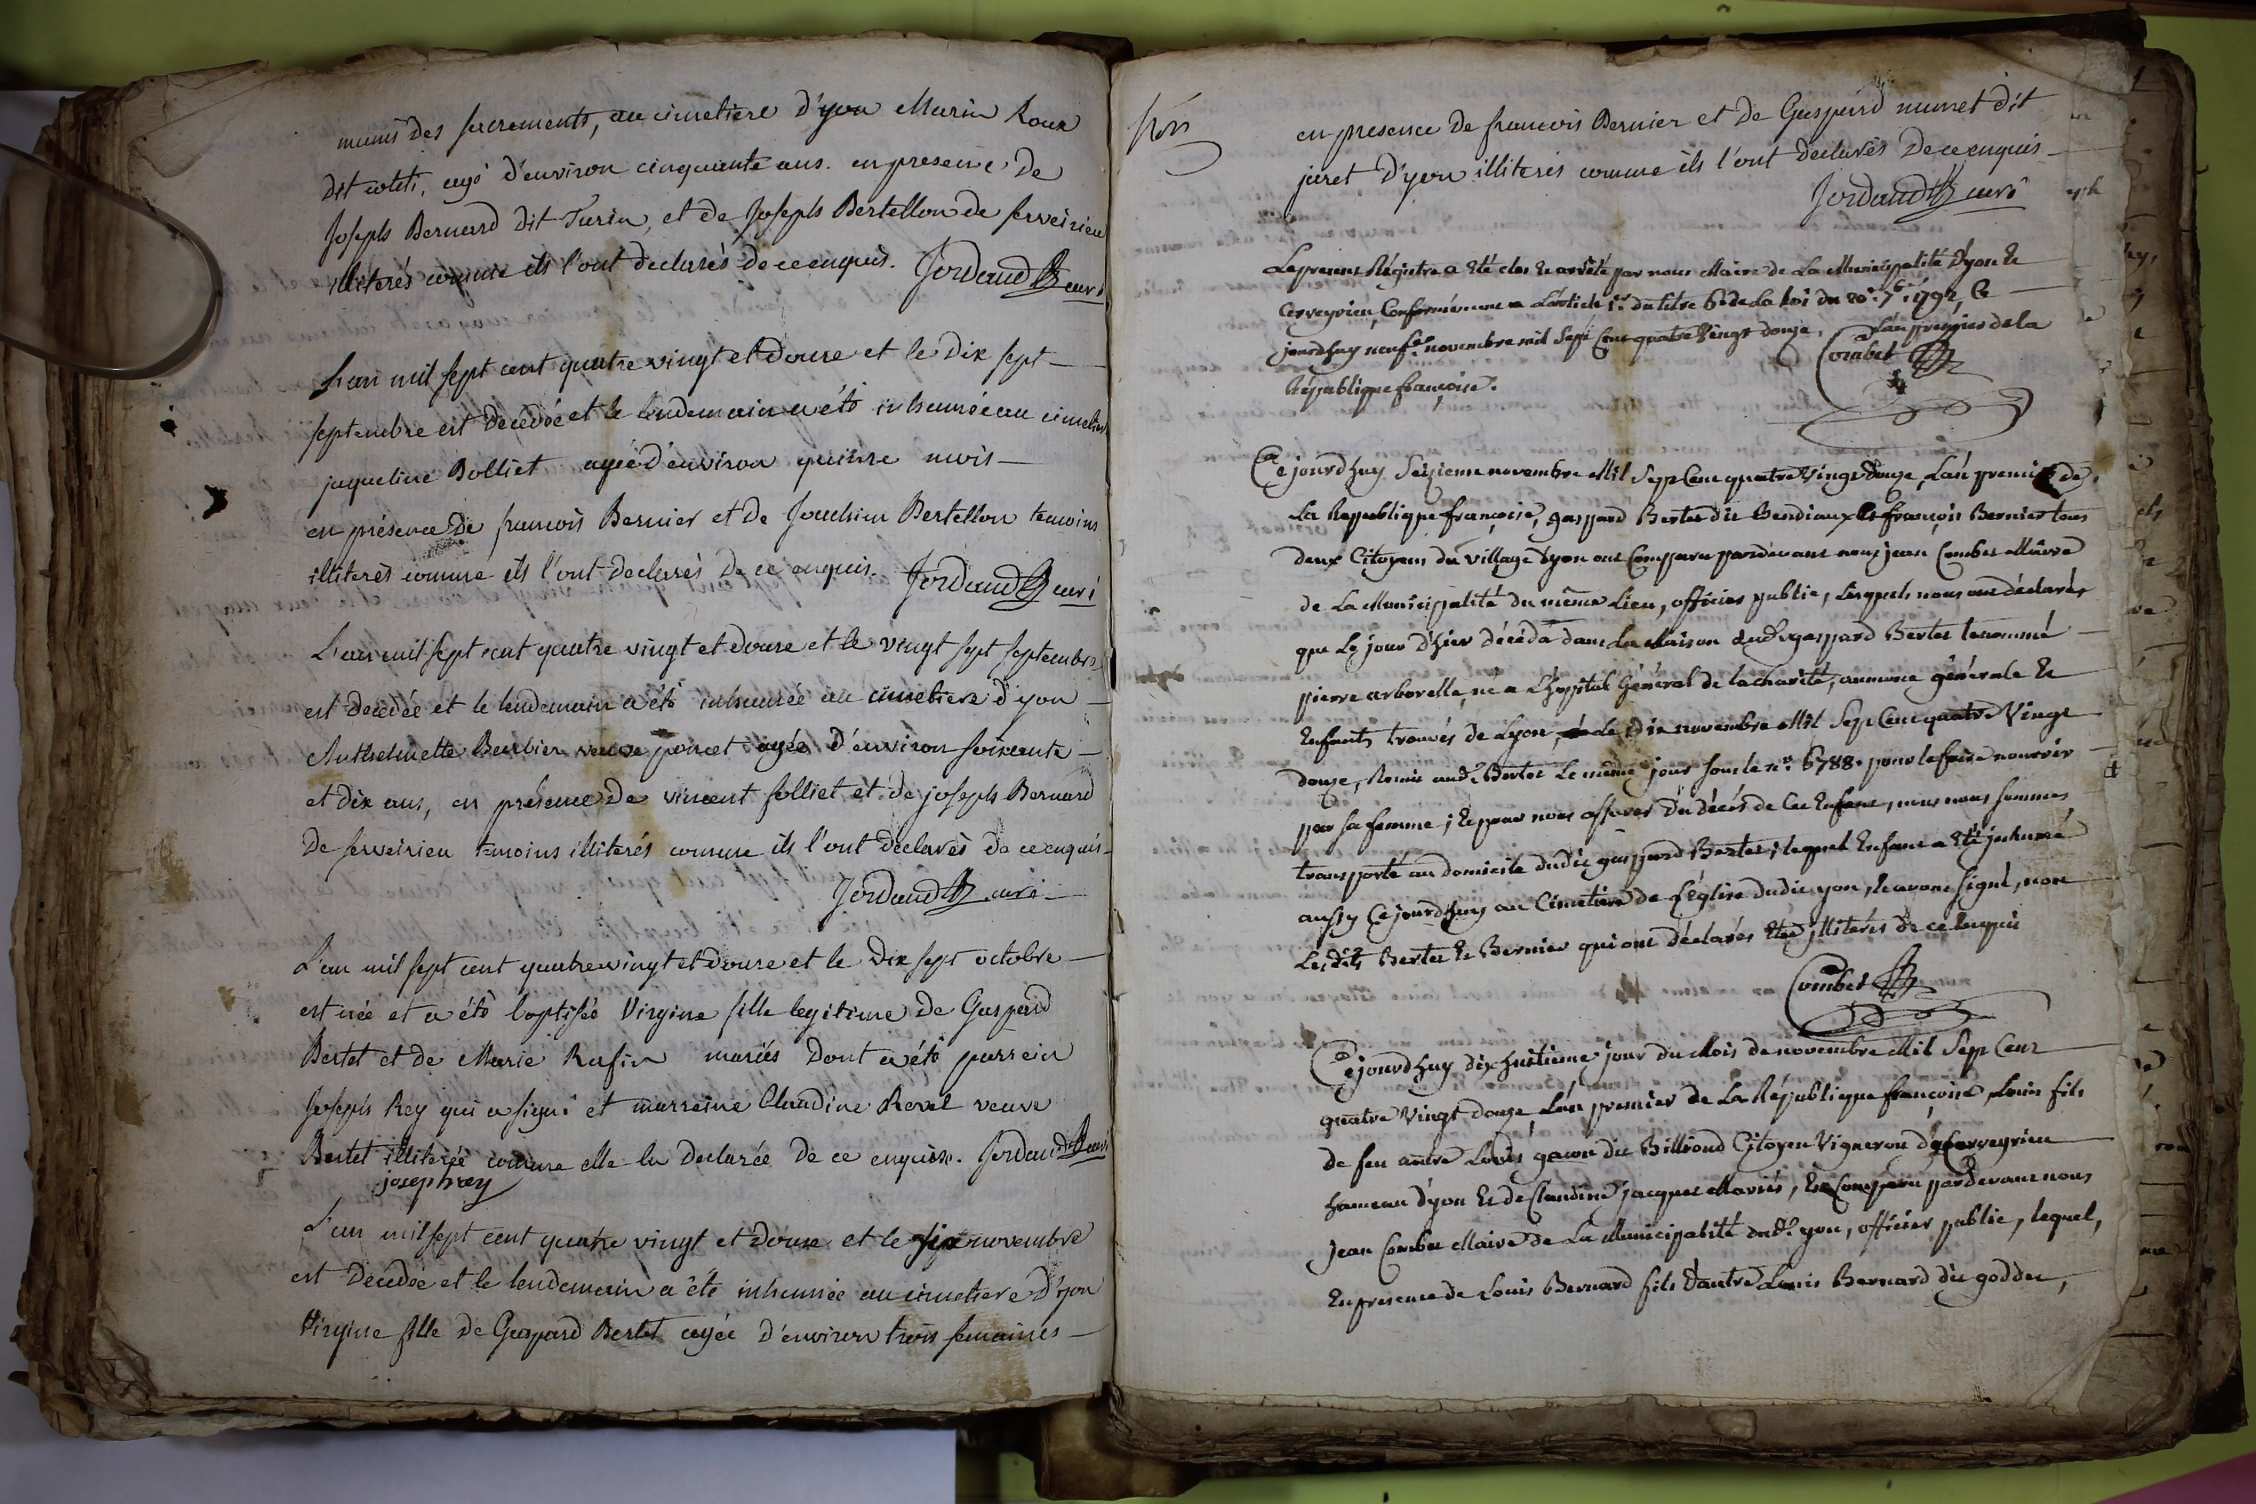 munis des sacrements, au cimetiere d'yon Marin Roux
dit coleti, agé d'environ cinquante ans. en presence de
Joseph Bernard dit Turin, et de Joseph Bertellon de serveirieu
illiterés comme ils l'ont declarés de ce enquis. Jordaud curé
L'an mil sept cent quatre vingt et douze et le dix sept
septembre est decedée et le lendemain a été inhumée au cimetiere
jaqueline Bolliet agée d'environ quinze mois
en présence de francois Bernier et de Joachim Bertellon temoins
illiterés comme ils l'ont declarés de ce enquis. Jordaud curé
L'an mil sept cent quatre vingt et douze et le vingt sept septembre
est decedée et le lendemain a été inhumée au cimetiere d'yon
Anthelmette Berbier veuve poncet agée d'environ soixante
et dix ans, en présence de vincent folliet et de joseph Bernard
de serveirieu temoins illiterés comme ils l'ont declarés de ce enquis
Jordaud curé
L'an mil sept cent quatre vingt et douze et le dix sept octobre
est née et a été baptisée Virgine fille legitime de Gaspard
Bertet et de Marie Rafin mariés dont a été parrein
Joseph Rey qui a signé et marreine Claudine Revel veuve
Bertet illiterée comme elle la declarée de ce enquise. Jordaud curé
joseph rey
L'an mil sept cent quatre vingt et douze et le six novembre
est decedée et le lendemain a été inhumée au cimetiere d'yon
Virgine fille de Gaspard Bertet agée d'environ trois semaines
en presence de francois Bernier et de Gaspard munet dit
juret d'yon illiterés comme ils l'ont declarés de ce enquis
Jordaud curé
Le présent Régistre a été clos et arrêté par nous Maire de La Municipalité d'yon et
Cerveyrieu, Conformément a L'article 1er du titre 6e de La Loi du 20e 7bre 1792, Ce
jourdhuy neufe novembre mil Sept Cent quatre Vingt douze, L'an premier de la
République françoise. Combet
Cejourdhuy Seizieme novembre Mil Sept Cent quatre Vingt douze, L'an premier de
La République françoise, gaspard Bertet dit Bendiaux et françois Bernier tous
deux Citoyens du village d'yon ont Comparu pardevant nous jean Combet Maire
de La Municipalité du même Lieu, officier public, Lesquels nous ont déclarés
que Le jour d'hier décéda dans La Maison dudt gaspard Bertet le nommé
pierre arborelle, né a L'hôpital Général de la Charité, aumone générale et
Enfants trouvés de Lyon, le dix novembre Mil Sept Cent quatre Vingt
douze, Remis audt Bertet Le même jour sous le no. 6788. pour le faire nourrir
par sa femme ; Et pour nous assurer du décés de Cet Enfant, nous nous sommes
transporté au domicile dudit gaspard Bertet ; lequel Enfant a été inhumé
aussy Cejourdhuy au Cimetiere de L'église dudit yon, Et avons signé, non
Lesdits Bertet et Bernier qui ont déclarés être illiterés de ce Enquis
Combet
Cejourdhuy dixhuitieme jour du Mois de novembre Mil Sept Cent
quatre Vingt douze L'an premier de La République françoise, Louis fils
de feu autre Louis gacon dit Billiond Citoyen Vigneron de Cerveyrieu
hameau d'yon et de Claudine jacquet Mariés, Est Comparu pardevant nous
jean Combet Maire de La Municipalité dudt yon, officier public, lequel,
En presence de Louis Bernard fils d'autre Louis Bernard dit goddet,